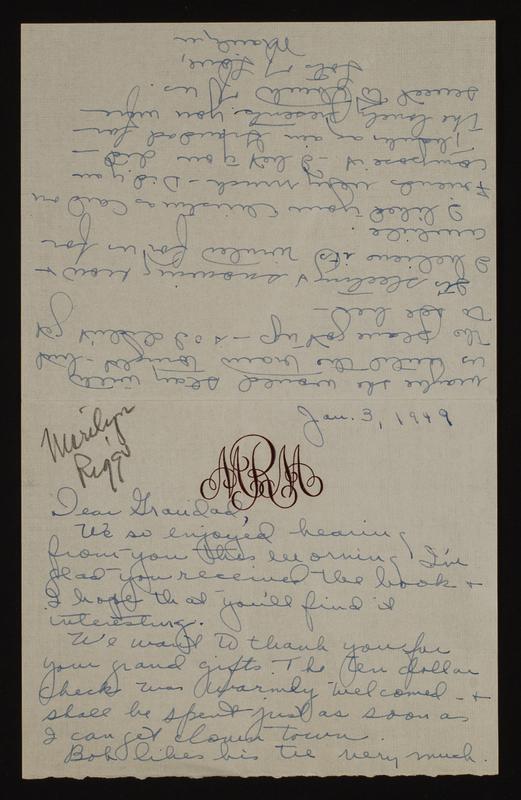 Jan. 3, 1949
Marilyn
Rigg
MRM
Dear Grandad,
We so enjoyed hearing
from you this morning, I'm
glad you received the book +
I hope that you'll find it
interesting.
We want to thank you for
your grand gifts. The ten dollar
check was warmly welcomed - +
shall be spent just as soon as
I can get down town.
Bob likes his tie very much.
maybe she would stay with
us until the train tonight - but
the plane got up - so I didn't get
to see her -
It's sleeting & snowing now +
I believe its winter for us for
awhile.
I liked your Christmas card on
Friends very much - Did you
compose it - I bet you did -
Thanks again Grandad for
the lovely presents you were
sweet to think of us.
Lots of Love,
Marilyn